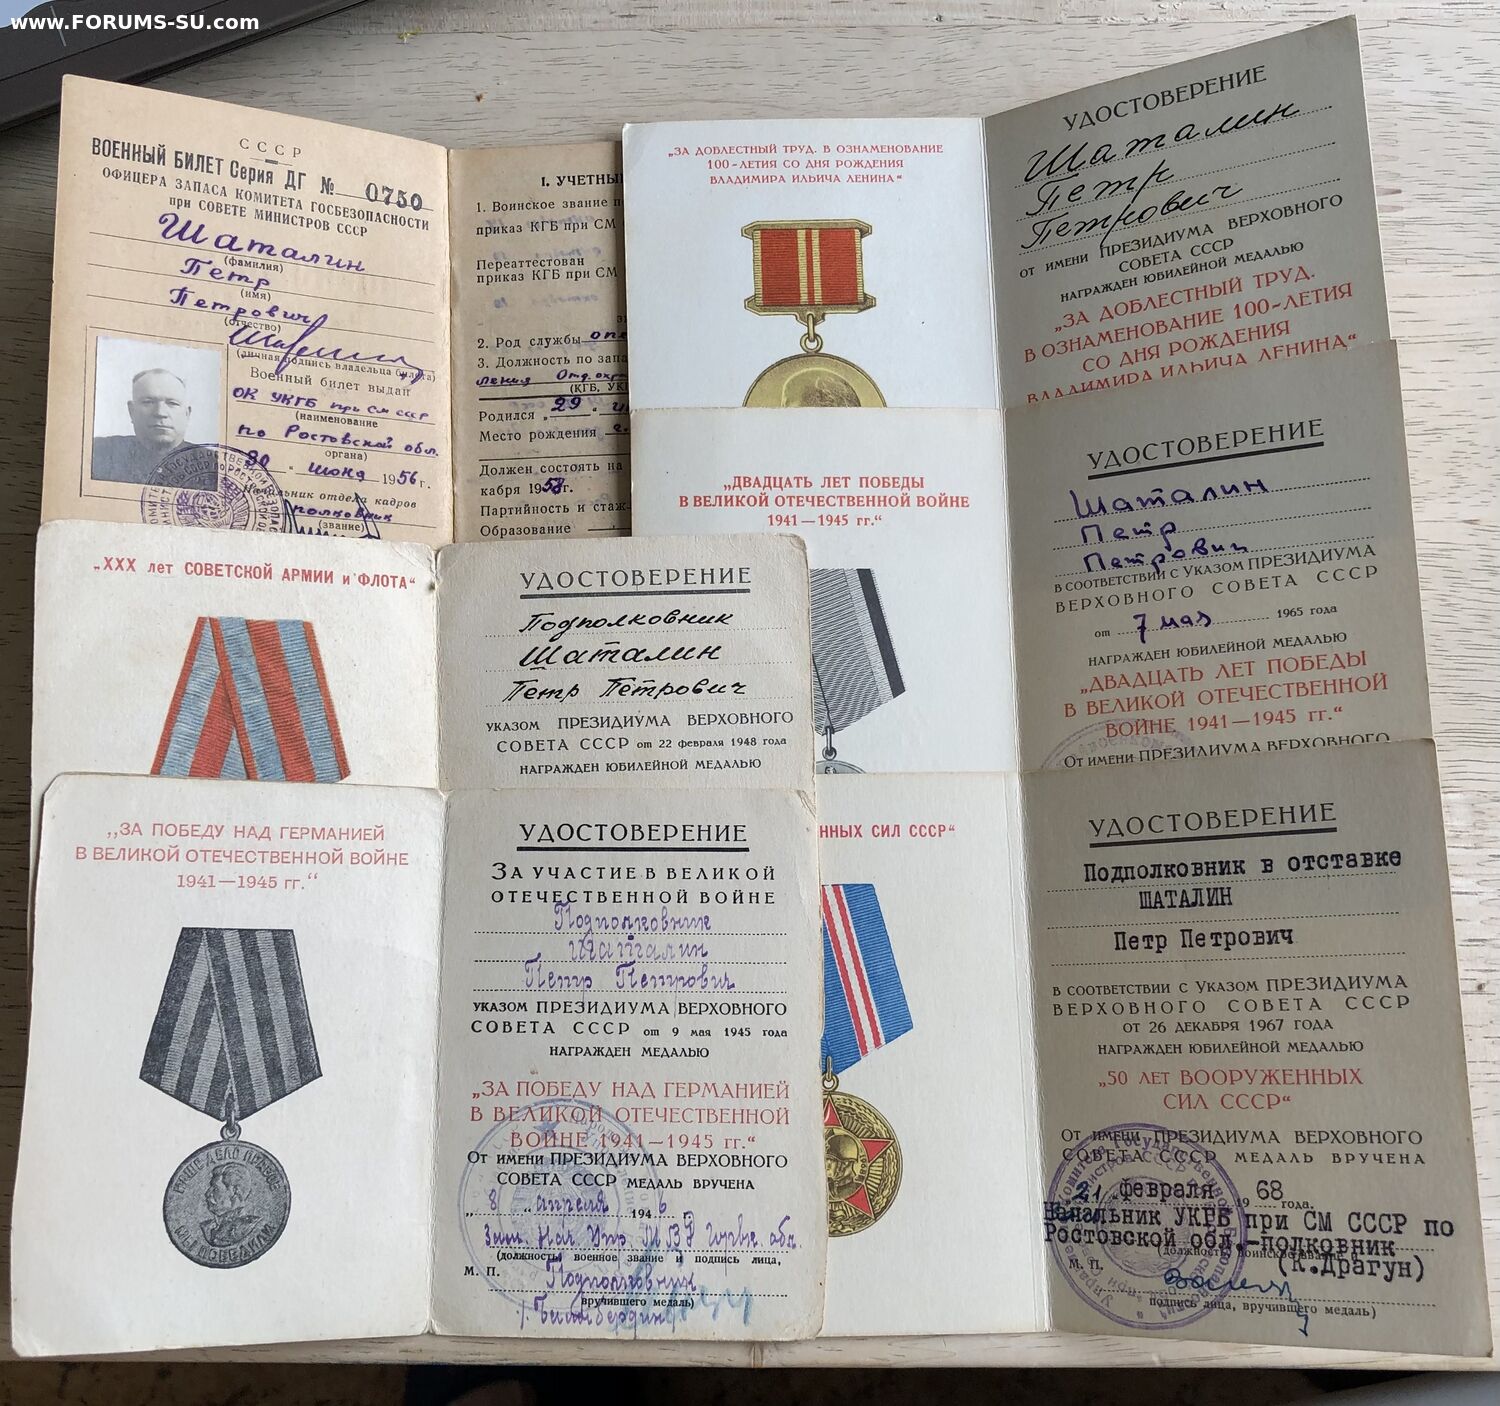 www.FORUMS-SU.com
СССР
ВОЕННЫЙ БИЛЕТ Серия ДГ № 0750
ОФИЦЕРА ЗАПАСА КОМИТЕТА ГОСБЕЗОПАСНОСТИ
при СОВЕТЕ МИНИСТРОВ СССР
Шаталин
(фамилия)
Петр
(имя)
Петрович
(отчество)
(личная подпись владельца билета)
Военный билет выдан
ОК УКГБ при СМ СССР
(наименование
по Ростовской обл.
органа)
30 " июня 1956 г.
Начальник отдела кадров
полковник
(звание)
I. УЧЕТНЫ
1. Воинское звание п
приказ КГБ при СМ
Переаттестован
приказ КГБ при СМ
2. Род службы опе
3. Должность по запа
(КГБ, УК
Родился „ 29 "
Место рождения г.
Должен состоять на
кабря 1958г.
Партийность и стаж
Образование
„ЗА ДОБЛЕСТНЫЙ ТРУД. В ОЗНАМЕНОВАНИЕ
100-ЛЕТИЯ СО ДНЯ РОЖДЕНИЯ
ВЛАДИМИРА ИЛЬИЧА ЛЕНИНА“
УДОСТОВЕРЕНИЕ
Шаталин
Петр
Петрович
ОТ ИМЕНИ ПРЕЗИДИУМА ВЕРХОВНОГО
СОВЕТА СССР
НАГРАЖДЕН ЮБИЛЕЙНОЙ МЕДАЛЬЮ
„ЗА ДОБЛЕСТНЫЙ ТРУД.
В ОЗНАМЕНОВАНИЕ 100-ЛЕТИЯ
СО ДНЯ РОЖДЕНИЯ
ВЛАДИМИРА ИЛЬИЧА ЛЕНИНА“
„ДВАДЦАТЬ ЛЕТ ПОБЕДЫ
В ВЕЛИКОЙ ОТЕЧЕСТВЕННОЙ ВОЙНЕ
1941—1945 гг.“
УДОСТОВЕРЕНИЕ
Шаталин
Петр
Петрович
В СООТВЕТСТВИИ С УКАЗОМ ПРЕЗИДИУМА
ВЕРХОВНОГО СОВЕТА СССР
от 7 мая 1965 года
НАГРАЖДЕН ЮБИЛЕЙНОЙ МЕДАЛЬЮ
„ДВАДЦАТЬ ЛЕТ ПОБЕДЫ
В ВЕЛИКОЙ ОТЕЧЕСТВЕННОЙ
ВОЙНЕ 1941—1945 гг.“
ОТ ИМЕНИ ПРЕЗИДИУМА ВЕРХОВНОГО
„XXX лет СОВЕТСКОЙ АРМИИ и ФЛОТА“
УДОСТОВЕРЕНИЕ
Подполковник
Шаталин
Петр Петрович
УКАЗОМ ПРЕЗИДИУМА ВЕРХОВНОГО
СОВЕТА СССР от 22 февраля 1948 года
НАГРАЖДЕН ЮБИЛЕЙНОЙ МЕДАЛЬЮ
„ЗА ПОБЕДУ НАД ГЕРМАНИЕЙ
В ВЕЛИКОЙ ОТЕЧЕСТВЕННОЙ ВОЙНЕ
1941—1945 гг.“
НАШЕ ДЕЛО ПРАВОЕ
МЫ ПОБЕДИЛИ
УДОСТОВЕРЕНИЕ
ЗА УЧАСТИЕ В ВЕЛИКОЙ
ОТЕЧЕСТВЕННОЙ ВОЙНЕ
Подполковник
Шаталин
Петр Петрович
УКАЗОМ ПРЕЗИДИУМА ВЕРХОВНОГО
СОВЕТА СССР от 9 мая 1945 года
НАГРАЖДЕН МЕДАЛЬЮ
„ЗА ПОБЕДУ НАД ГЕРМАНИЕЙ
В ВЕЛИКОЙ ОТЕЧЕСТВЕННОЙ
ВОЙНЕ 1941—1945 гг.“
ОТ ИМЕНИ ПРЕЗИДИУМА ВЕРХОВНОГО
СОВЕТА СССР МЕДАЛЬ ВРУЧЕНА
„8 " апреля 1946 г.
Зам. Нач. Упр. МВД обл.
(должность военное звание и подпись лица,
М. П.
Подполковник
вручившего медаль)
ННЫХ СИЛ СССР“
УДОСТОВЕРЕНИЕ
Подполковник в отставке
ШАТАЛИН
Петр Петрович
В СООТВЕТСТВИИ С УКАЗОМ ПРЕЗИДИУМА
ВЕРХОВНОГО СОВЕТА СССР
ОТ 26 ДЕКАБРЯ 1967 ГОДА
НАГРАЖДЕН ЮБИЛЕЙНОЙ МЕДАЛЬЮ
„50 ЛЕТ ВООРУЖЕННЫХ
СИЛ СССР“
ОТ ИМЕНИ ПРЕЗИДИУМА ВЕРХОВНОГО
СОВЕТА СССР МЕДАЛЬ ВРУЧЕНА
„21 „февраля 1968 года.
Начальник УКГБ при СМ СССР по
Ростовской обл.-полковник
М. П.
(К.Драгун)
подпись лица, вручившего медаль)